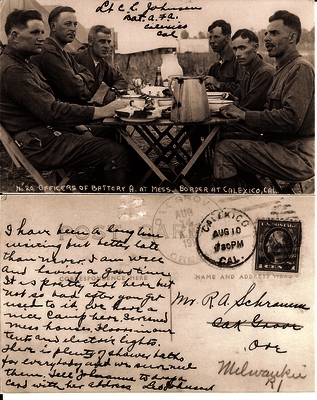 Lt C L Johnson
Bat. A. F.A.
Calexico
Cal
No. 20 OFFICERS OF BATTERY A. AT MESS. BORDER AT CALEXICO, CAL.
I have been a long time
writing but better late
than never. I am well
and having a good time.
It is pretty hot here but
not so bad after you get
used to it. We have a
nice camp here. Screened
mess houses. Floors in our
tents and electric lights.
There is plenty of shower baths
for everybody and we sure need
them. Tell Johnanne to drop a
card with her address
CORRESPONDENCE
NAME AND ADDRESS
CALEXICO
AUG 10
30PM
CAL.
U.S. POSTAGE
1 CENT 1
AUG
Mr. R A Schramm
Oak Grove
Ore
Milwaukie
R1